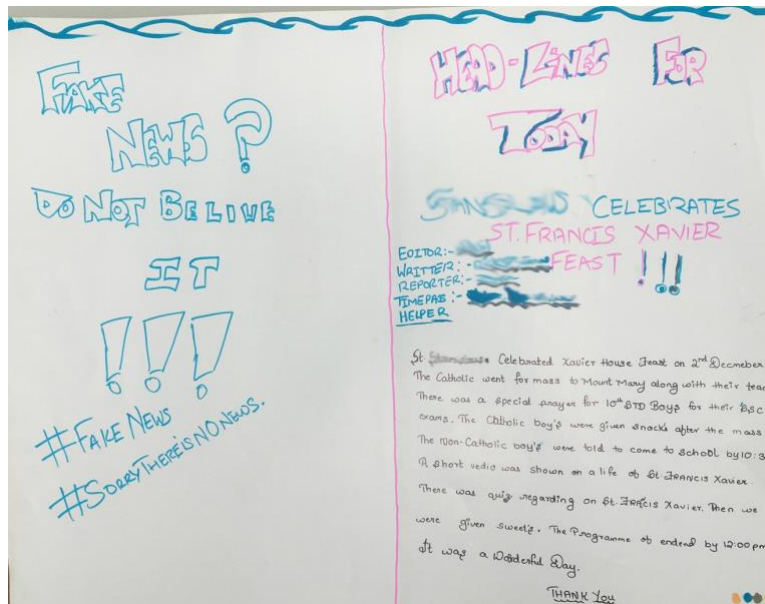 FAKE
NEWS ?
DO NOT BELIVE
IT
!!!
#FAKE NEWS
#SORRYTHERE'SNONEWS.
HEAD-LINES FOR
TODAY
CELEBRATES
ST. FRANCIS XAVIER
FEAST !!!
EDITOR:-
WRITTER:-
REPORTER:-
TIMEPAS:-
HELPER
St. Celebrated Xavier House Feast on 2nd Decmeber
The Catholic went for mass to Mount Mary along with their
There was a special prayer for 10th STD Boys for their
exams. The Catholic boy's were given snacks after the mass
The non-Catholic boy's were told to come to school by 10:3
A short vedio was shown on a life of St. FRANCIS Xavier.
There was quiz regarding on St. FRACIS Xavier. Then we
were given sweet's. The Programme of endend by 12:00 pm
It was a Wonderful Day.
THANK YOU